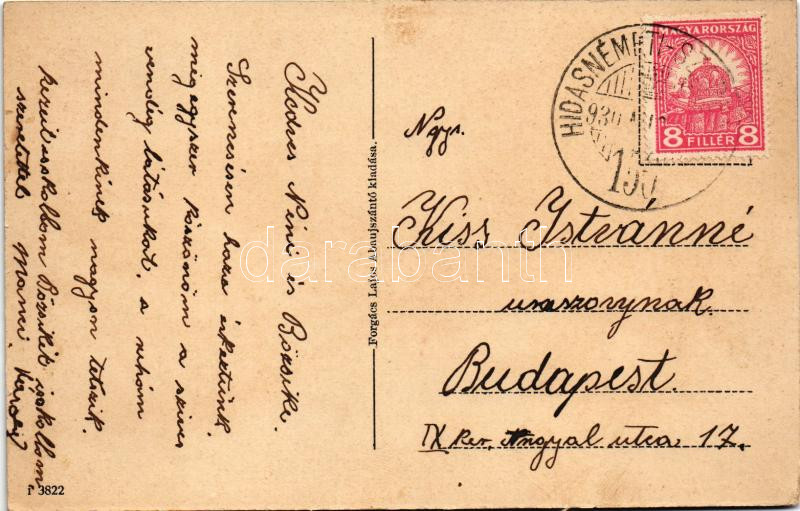 Kedves Néni és Bözsike.
Szerencsésen haza érkeztünk,
még egyszer köszönöm a szíves
vendég látásukat. a ruhám
mindenkinek nagyon tetszik.
kezeit csókolom Bözsikét csókollom
szeretettel Mami Károly
Forgács Lajos Abaujszántó kiadása.
P 3822
HIDASNÉMETI
930
MAGYARORSZÁG
8 FILLÉR 8
Ngys.
Kiss Istvánné
uraszonynak.
Budapest.
IX ker. Angyal utca 17.
darabanth